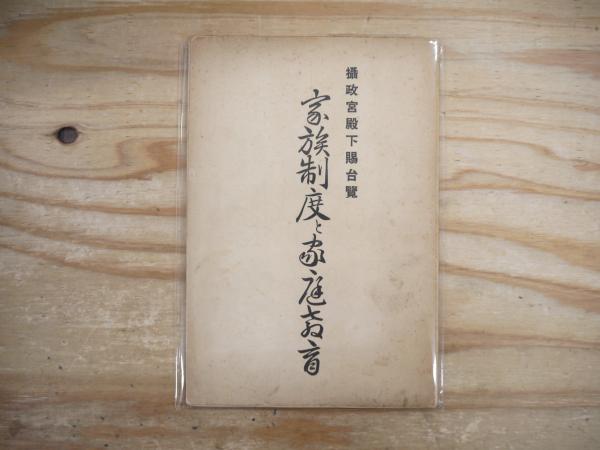 攝政宮殿下賜台覽
家族制度と家庭教育